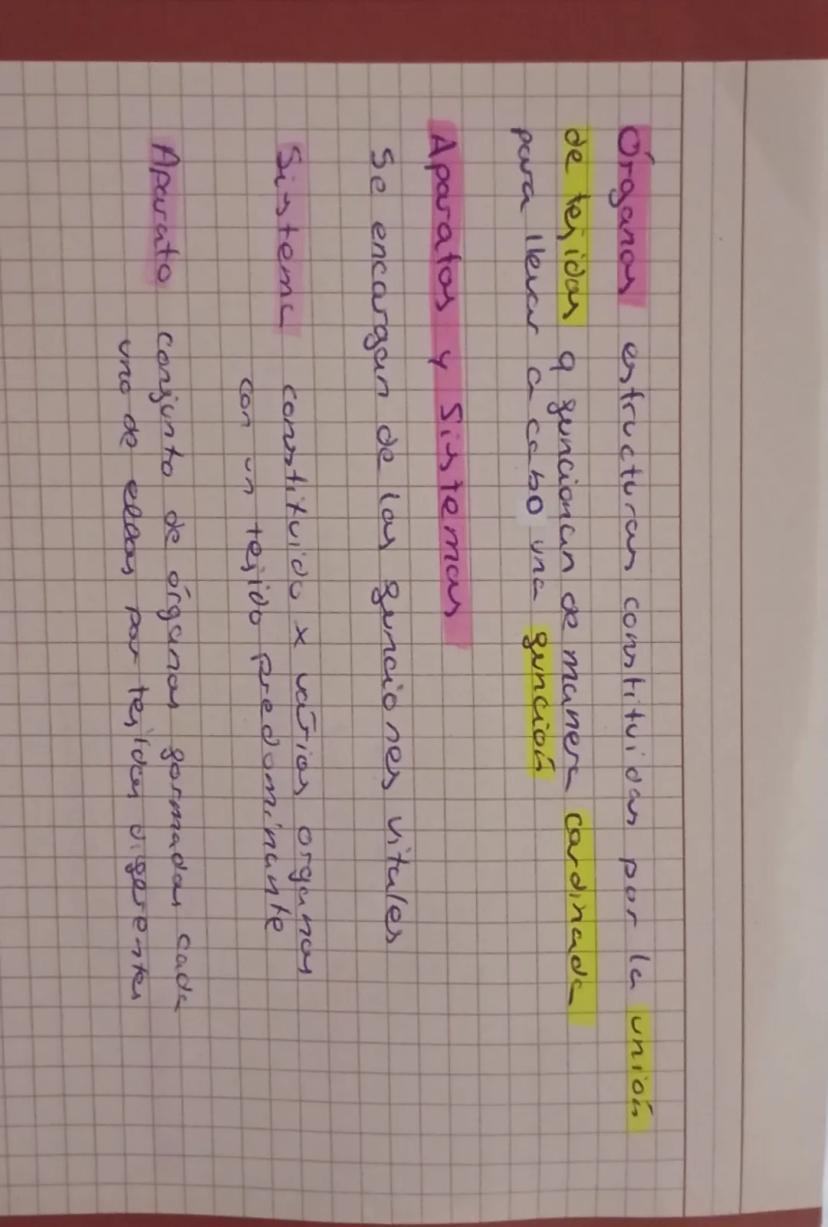 Órganos estructuras constituidas por la unión
de tejidos q funcionan de manera cordinada
para llevar a cabo una función
Aparatos y Sistemas
Se encargan de las funciones vitales
Sistema constituido x varios organos
con un tejido predominante
Aparato conjunto de órganos formados cada
uno de ellos por tejidos diferentes